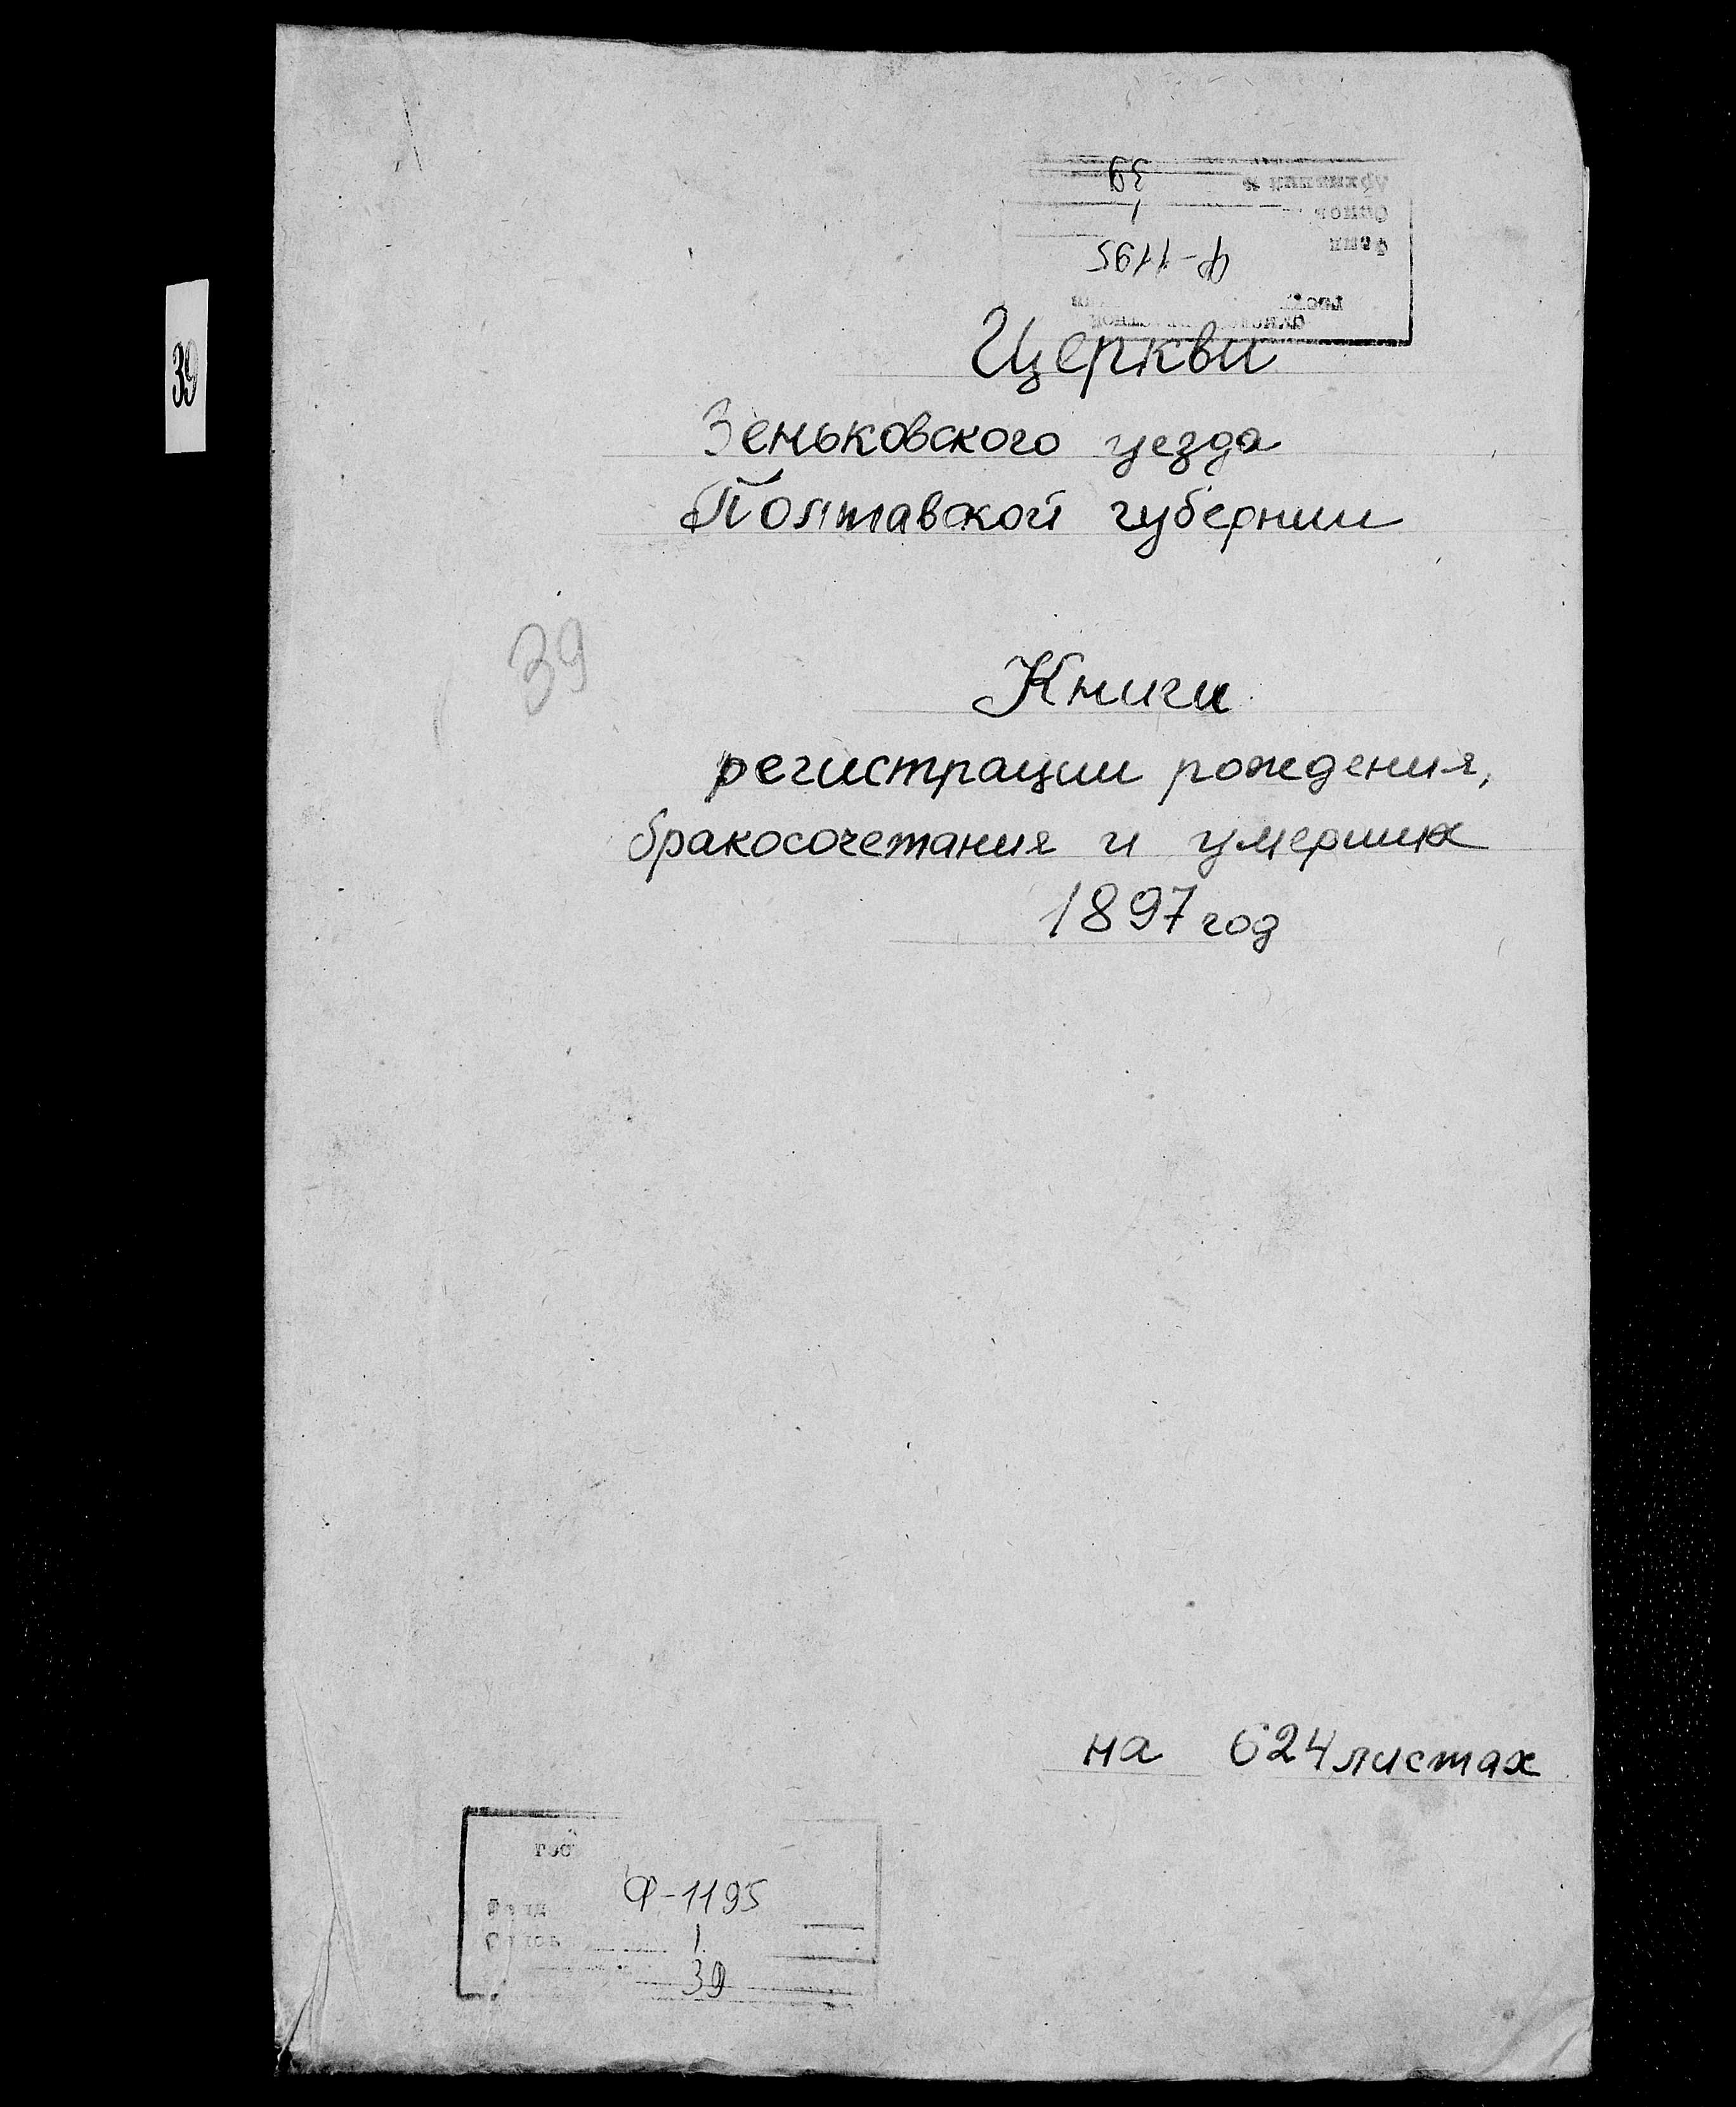 39
Архивный №
39
Опись
1
Фонд
Ф-1195
Церкви
Зеньковского уезда
Полтавской губернии
39
Книги
регистрации рождения,
бракосочетания и умерших
1897 год
на 624 листах
Гос
Фонд Ф-1195
Опись 1
39